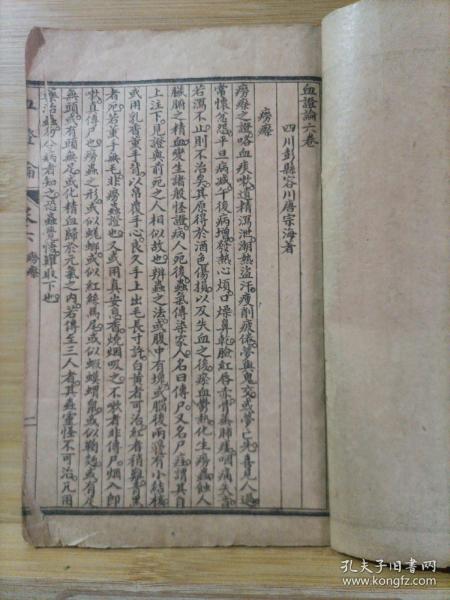 血證論六卷
四川彭縣容川唐宗海著
癆瘵
癆瘵之證咯血痰嗽遺精洩泄潮熱盜汗瘦削疲倦夢與鬼交或夢亡先喜見人過
常懷忿怒平旦病減午後病增發熱心煩口燥鼻乾臉紅唇赤骨蒸肺痿咽痛失音
若瀉不止則不治矣其原得於酒色傷損以及失血之後瘀血鬱熱化生癆蟲蝕人
臟腑之精血變生諸般怪證病人死後蟲氣傳染家人名曰傳尸又名尸疰謂其自
上注下見證與前死之人相似故也辨蟲之法或腹中有塊或腦後兩邊有小結核
或用乳香熏手背以帛覆手心良久手上出毛長寸許白黃者可治紅者稍難青黑
者死若熏手無毛非癆蟲證也又或用真安息香燒烟吸之不嗽者非傳尸烟入即
嗽真傳尸也癆蟲之形或似蜣螂或似紅絲馬尾或似蝦蟆蝟鼠或似鞠麪或有足
無頭或有頭無足或化精血歸於元氣之内若傳至三人者其蟲靈怪不可治凡用
藥治蟲勿令病者知之恐蟲覺怪難取下也
血證論
卷六 癆瘵
一
孔夫子旧书网
www.kongfz.com